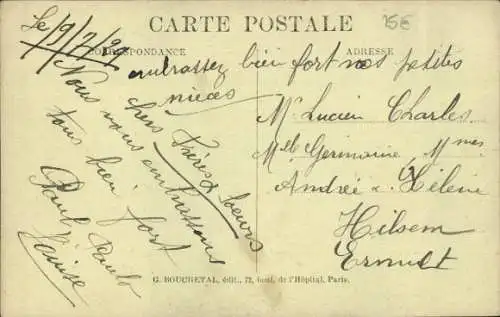 CARTE POSTALE
15E
CORRESPONDANCE
ADRESSE
Le 19/7/27
Chers Frères & Soeurs
Nous vous embrassons
tous bien fort
Paul
Louise
embrassez bien fort nos petites
nièces
Mr Lucien Charles
Melle Germaine, Mmes
Andrée & Hélène
Hilsem
Ermult
G. BOUCHETAL, édit., 72, boul. de l'Hôpital, Paris.